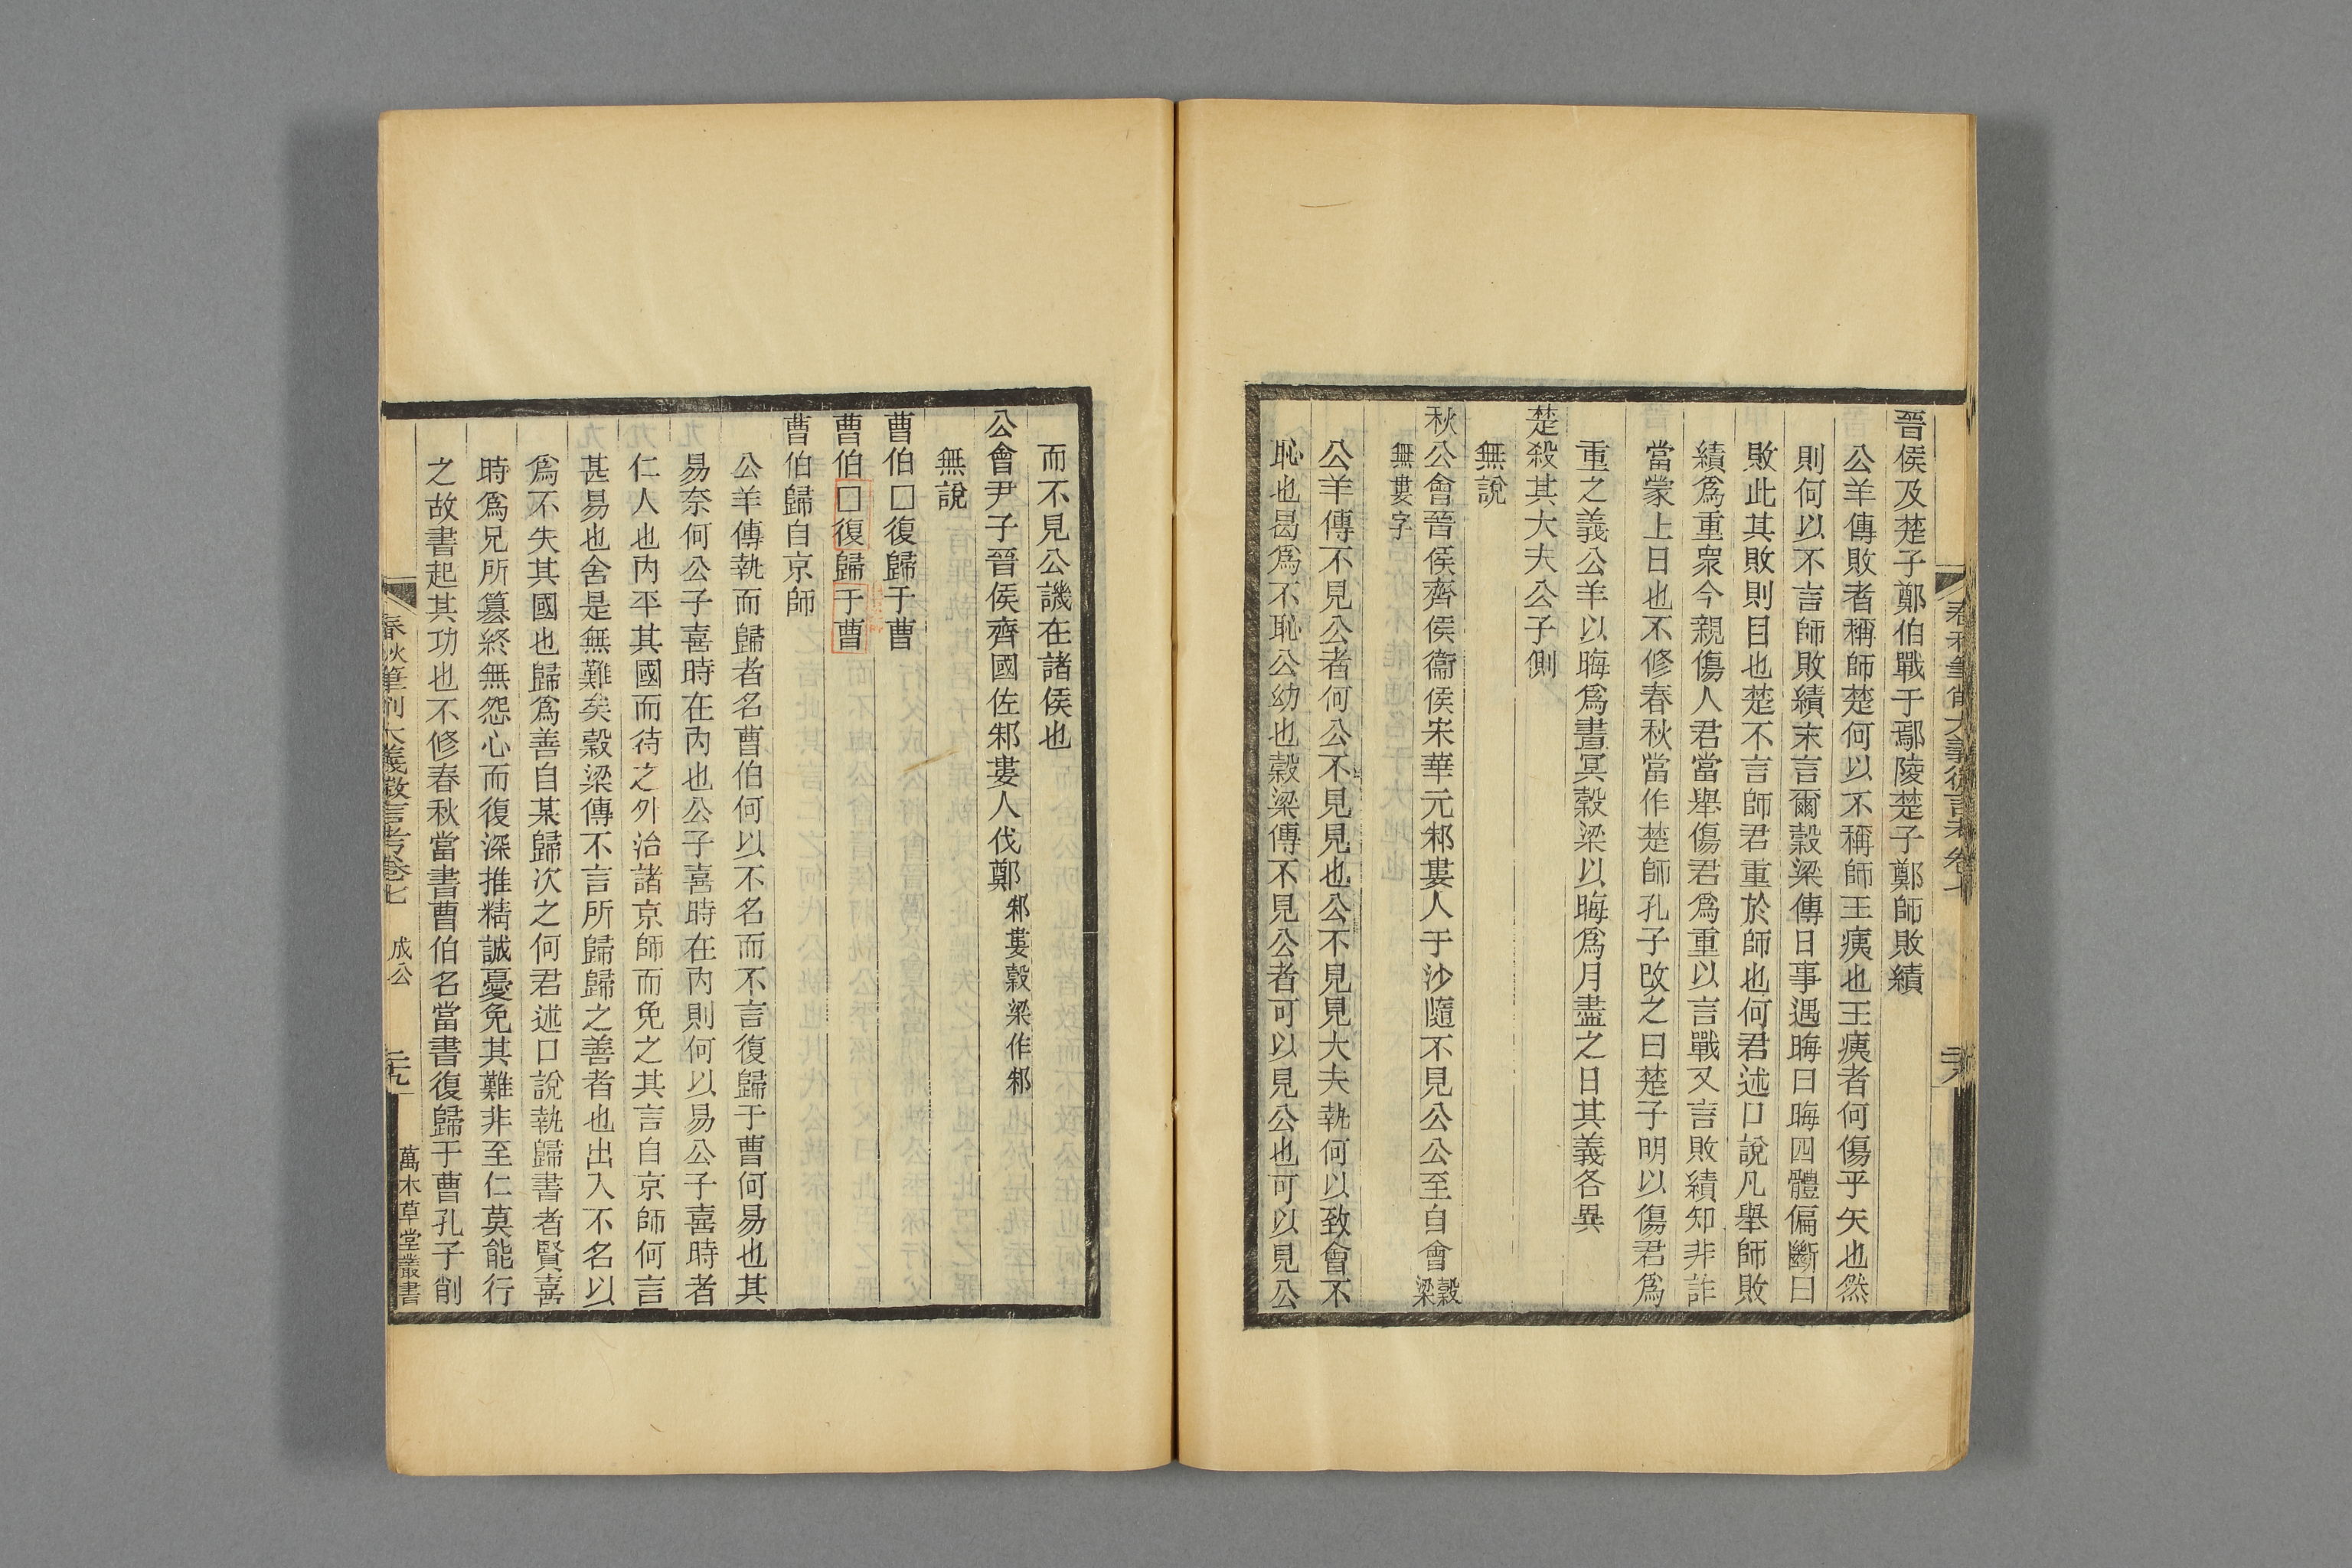 晉侯及楚子鄭伯戰于鄢陵楚子鄭師敗績
公羊傳敗者稱師楚何以不稱師王痍也王痍者何傷乎矢也然
則何以不言師敗績末言爾穀梁傳日事遇晦曰晦四體偏斷曰
敗此其敗則目也楚不言師君重於師也何君述口說凡舉師敗
績爲重衆今親傷人君當舉傷君爲重以言戰又言敗績知非詐
當蒙上日也不修春秋當作楚師孔子改之曰楚子明以傷君爲
重之義公羊以晦爲晝冥穀梁以晦爲月盡之日其義各異
楚殺其大夫公子側
無說
秋公會晉侯齊侯衞侯宋華元邾婁人于沙隨不見公公至自會穀梁
無婁字
公羊傳不見公者何公不見見也公不見見大夫執何以致會不
恥也曷爲不恥公幼也穀梁傳不見公者可以見公也可以見公
而不見公譏在諸侯也
公會尹子晉侯齊國佐邾婁人伐鄭邾婁穀梁作邾
無說
曹伯□復歸于曹
曹伯□復歸于曹
曹伯歸自京師
公羊傳執而歸者名曹伯何以不名而不言復歸于曹何易也其
易奈何公子喜時在內也公子喜時在內則何以易公子喜時者
仁人也內平其國而待之外治諸京師而免之其言自京師何言
甚易也舍是無難矣穀梁傳不言所歸歸之善者也出入不名以
爲不失其國也歸爲善自某歸次之何君述口說執歸書者賢喜
時爲兄所篡終無怨心而復深推精誠憂免其難非至仁莫能行
之故書起其功也不修春秋當書曹伯名當書復歸于曹孔子削
春秋筆削大義微言考卷七 成公 二十九 萬木草堂叢書